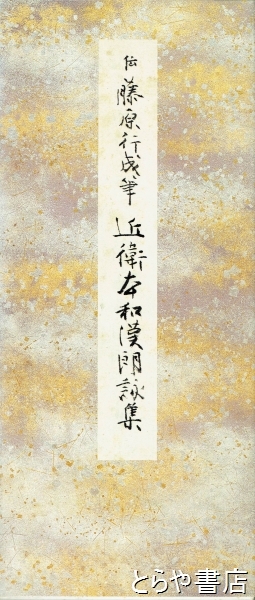 伝 藤原行成筆 近衛本和漢朗詠集
とらや書店